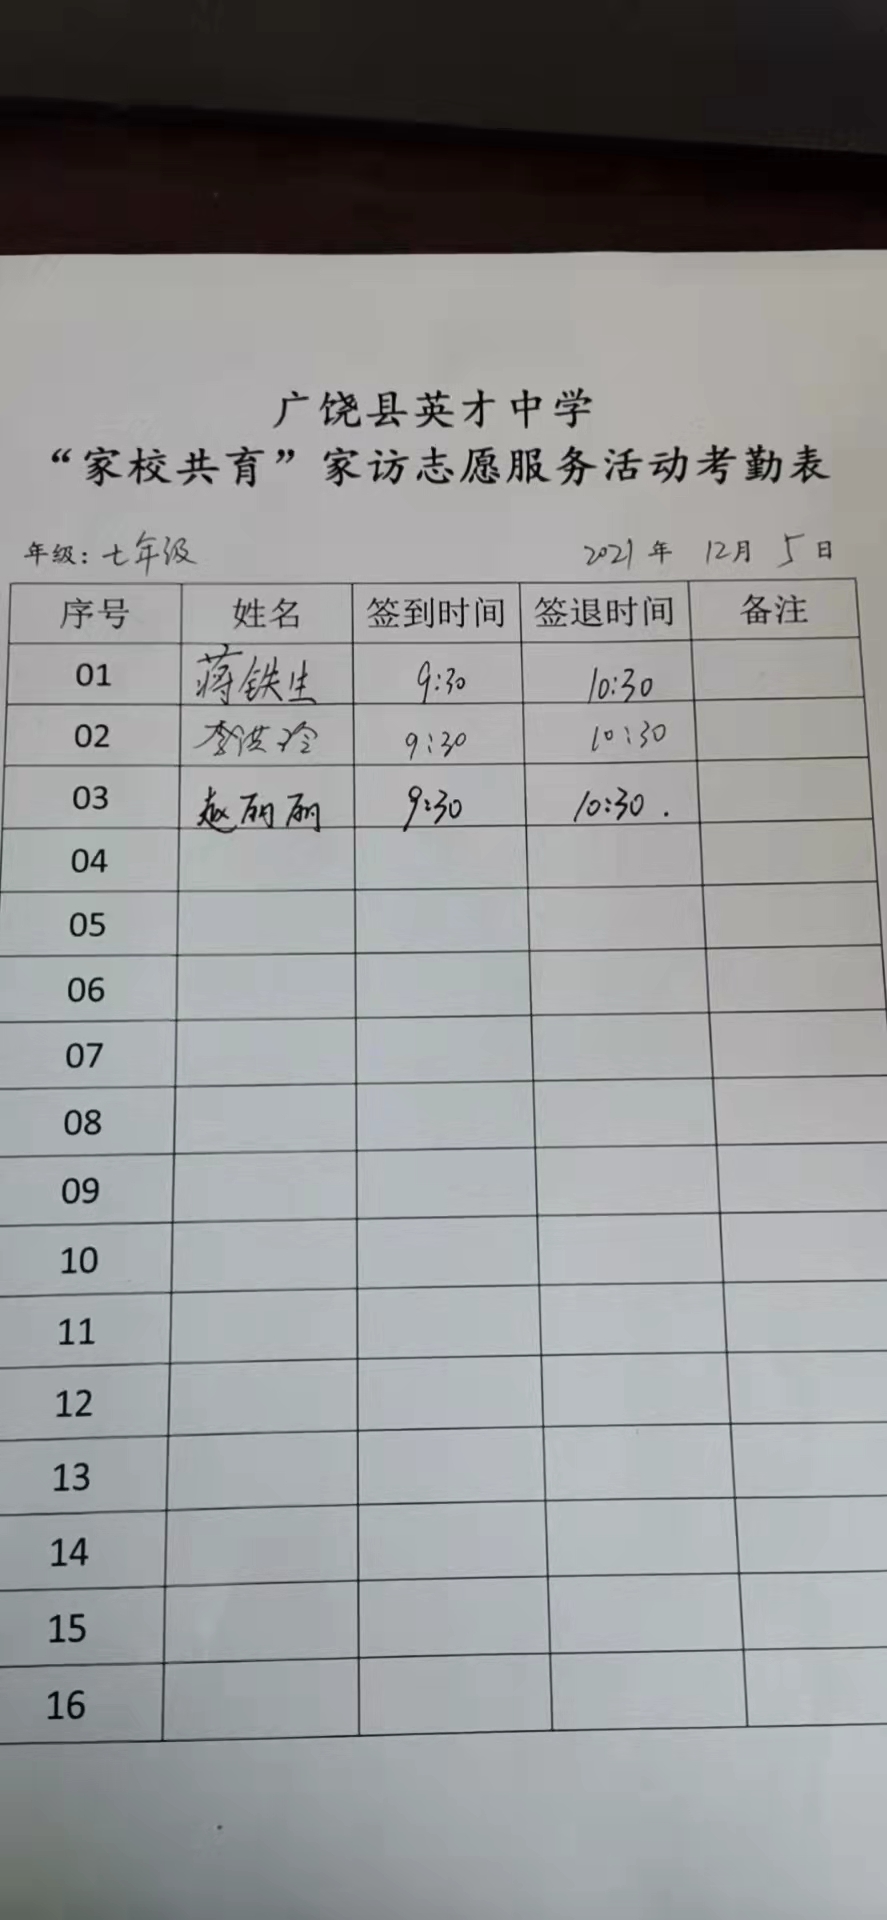 广饶县英才中学
“家校共育”家访志愿服务活动考勤表
年级：七年级 2021年 12月 5日
序号 姓名 签到时间 签退时间 备注
01 蒋铁生 9:30 10:30
02 李洪玲 9:30 10:30
03 赵丽丽 9:30 10:30.
04
05
06
07
08
09
10
11
12
13
14
15
16